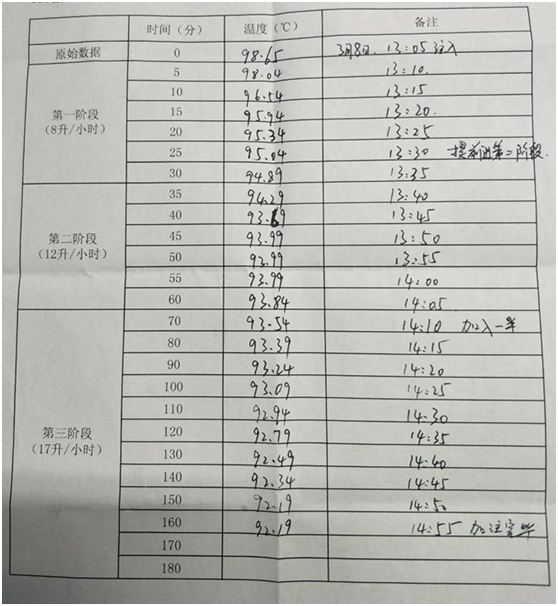 时间（分） 温度（℃） 备注
原始数据 0 98.65 3月8日、13:05 注入
5 98.04 13:10.
10 96.54 13:15
第一阶段 15 95.94 13:20.
（8升/小时） 20 95.34 13:25
25 95.04 13:30 提前进第二阶段.
30 94.89 13:35
35 94.29 13:40
40 93.69 13:45
第二阶段 45 93.99 13:50
（12升/小时） 50 93.99 13:55
55 93.99 14:00
60 93.84 14:05
70 93.54 14:10 加入一半
80 93.39 14:15
90 93.24 14:20
100 93.09 14:25
110 92.94 14:30
第三阶段 120 92.79 14:35
（17升/小时） 130 92.49 14:40
140 92.34 14:45
150 92.19 14:50
160 92.19 14:55 加注完毕
170
180